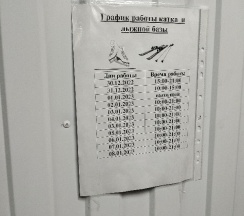 График работы катка и
лыжной базы
Дни работы Время работы
30.12.2022 15:00-21:00
31.12.2022 10:00-15:00
01.01.2023 выходной
02.01.2023 10:00-21:00
03.01.2023 10:00-21:00
04.01.2023 10:00-21:00
05.01.2023 10:00-21:00
06.01.2023 10:00-21:00
07.01.2023 10:00-21:00
08.01.2023 10:00-21:00